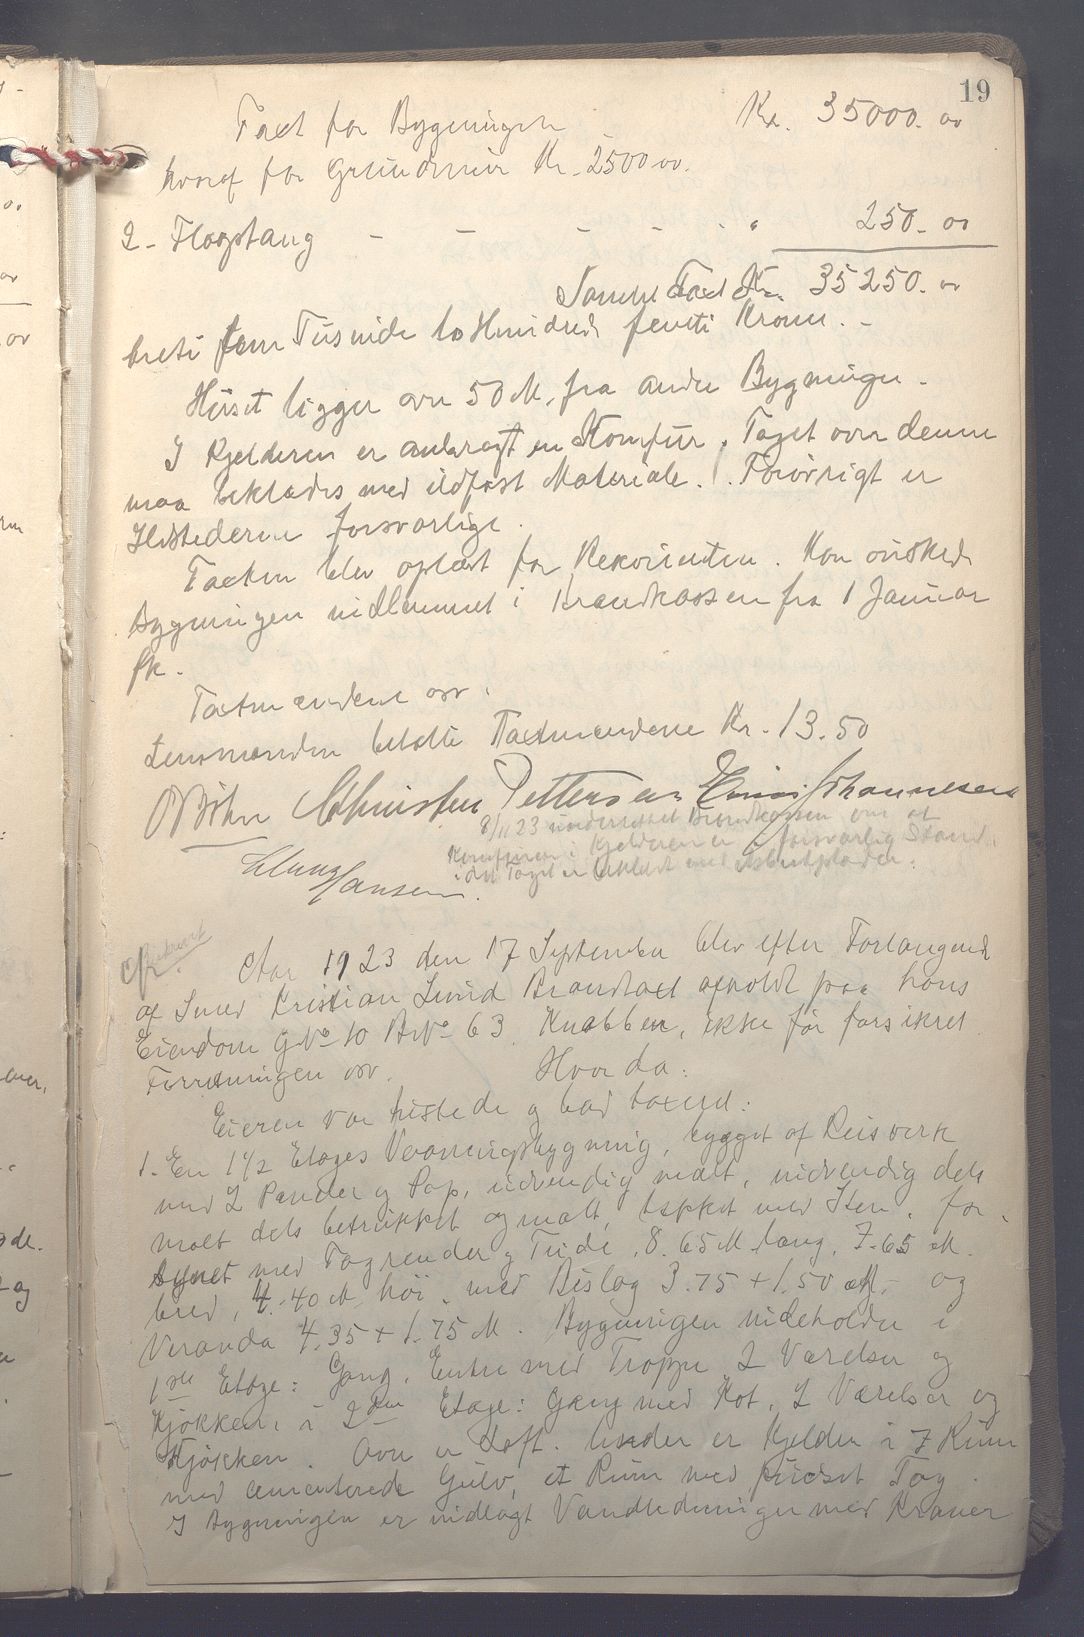 19
Taxt for Bygningen Kr. 35000.00
hvoraf for Grundmur Kr. 2500.00.
2 - Flagstang - - - - - " 250.00
Samlet Taxt Kr. 35250.00
treti fem Tusinde to Hundrede femti Kroner. -
Huset ligger over 50 M. fra andre Bygninger.
I Kjelderen er anbragt en Komfur. Taget over denne
maa beklædes med ildfast Materiale. Forøvrigt er
Ildstederne forsvarlige.
Taxten blev oplæst for Rekvirenten. Han ønskede
Bygningen indlemmet i Brandkassen fra 1 Januar
fk.
Taxtmændene osv.
Lensmanden betalte Taxtmændene Kr. 13.50
Christen Pettersen Johannesen
8/11 23 underrettet Brandkassen om at
Komfuren i Kjelderen er i forsvarlig Stand,
idet Taget er beklædt med Asbestplader.
Hansen.
Aar 1923 den 17 September blev efter Forlangende
af Smed Kristian Lund Brandtaxt afholdt paa hans
Eiendom GNo 10 BNo 63 Knabben, ikke før forsikret
Forretningen osv. Hvor da:
Eieren var tilstede og bad taxeret:
1. En 1 1/2 Etages Vaaningsbygning, bygget af Reisverk
med 2 Pander og Pap, udvendig malt, indvendig dels
malt dels betrukket og malt, tækket med Sten, for-
synet med Tagrender og Tude, 8.65 M lang, 7.65 M.
bred, 4.40 M. høi, med Bislag 3.75 + 1.50 M, og
Veranda 4.35 + 1.75 M. Bygningen indeholder i
1ste Etage: Gang, Entre med Trappe 2 Værelser og
Kjøkken, i 2den Etage: Gang med Kot, 2 Værelser og
Kjøkken. Over er Loft. Under er Kjelder i 7 Rum
med cementerede Gulv, et Rum med pudset Tag.
I Bygningen er indlagt Vandledninger med Kraner